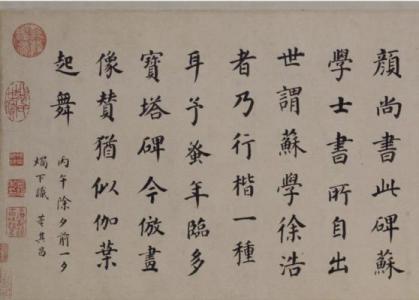 顏尚書此碑蘇
學士書所自出
世謂蘇學徐浩
者乃行楷一種
耳予蚤年臨多
寶塔碑今倣畫
像贊猶似伽葉
起舞
丙午除夕前一夕
燭下識 董其昌